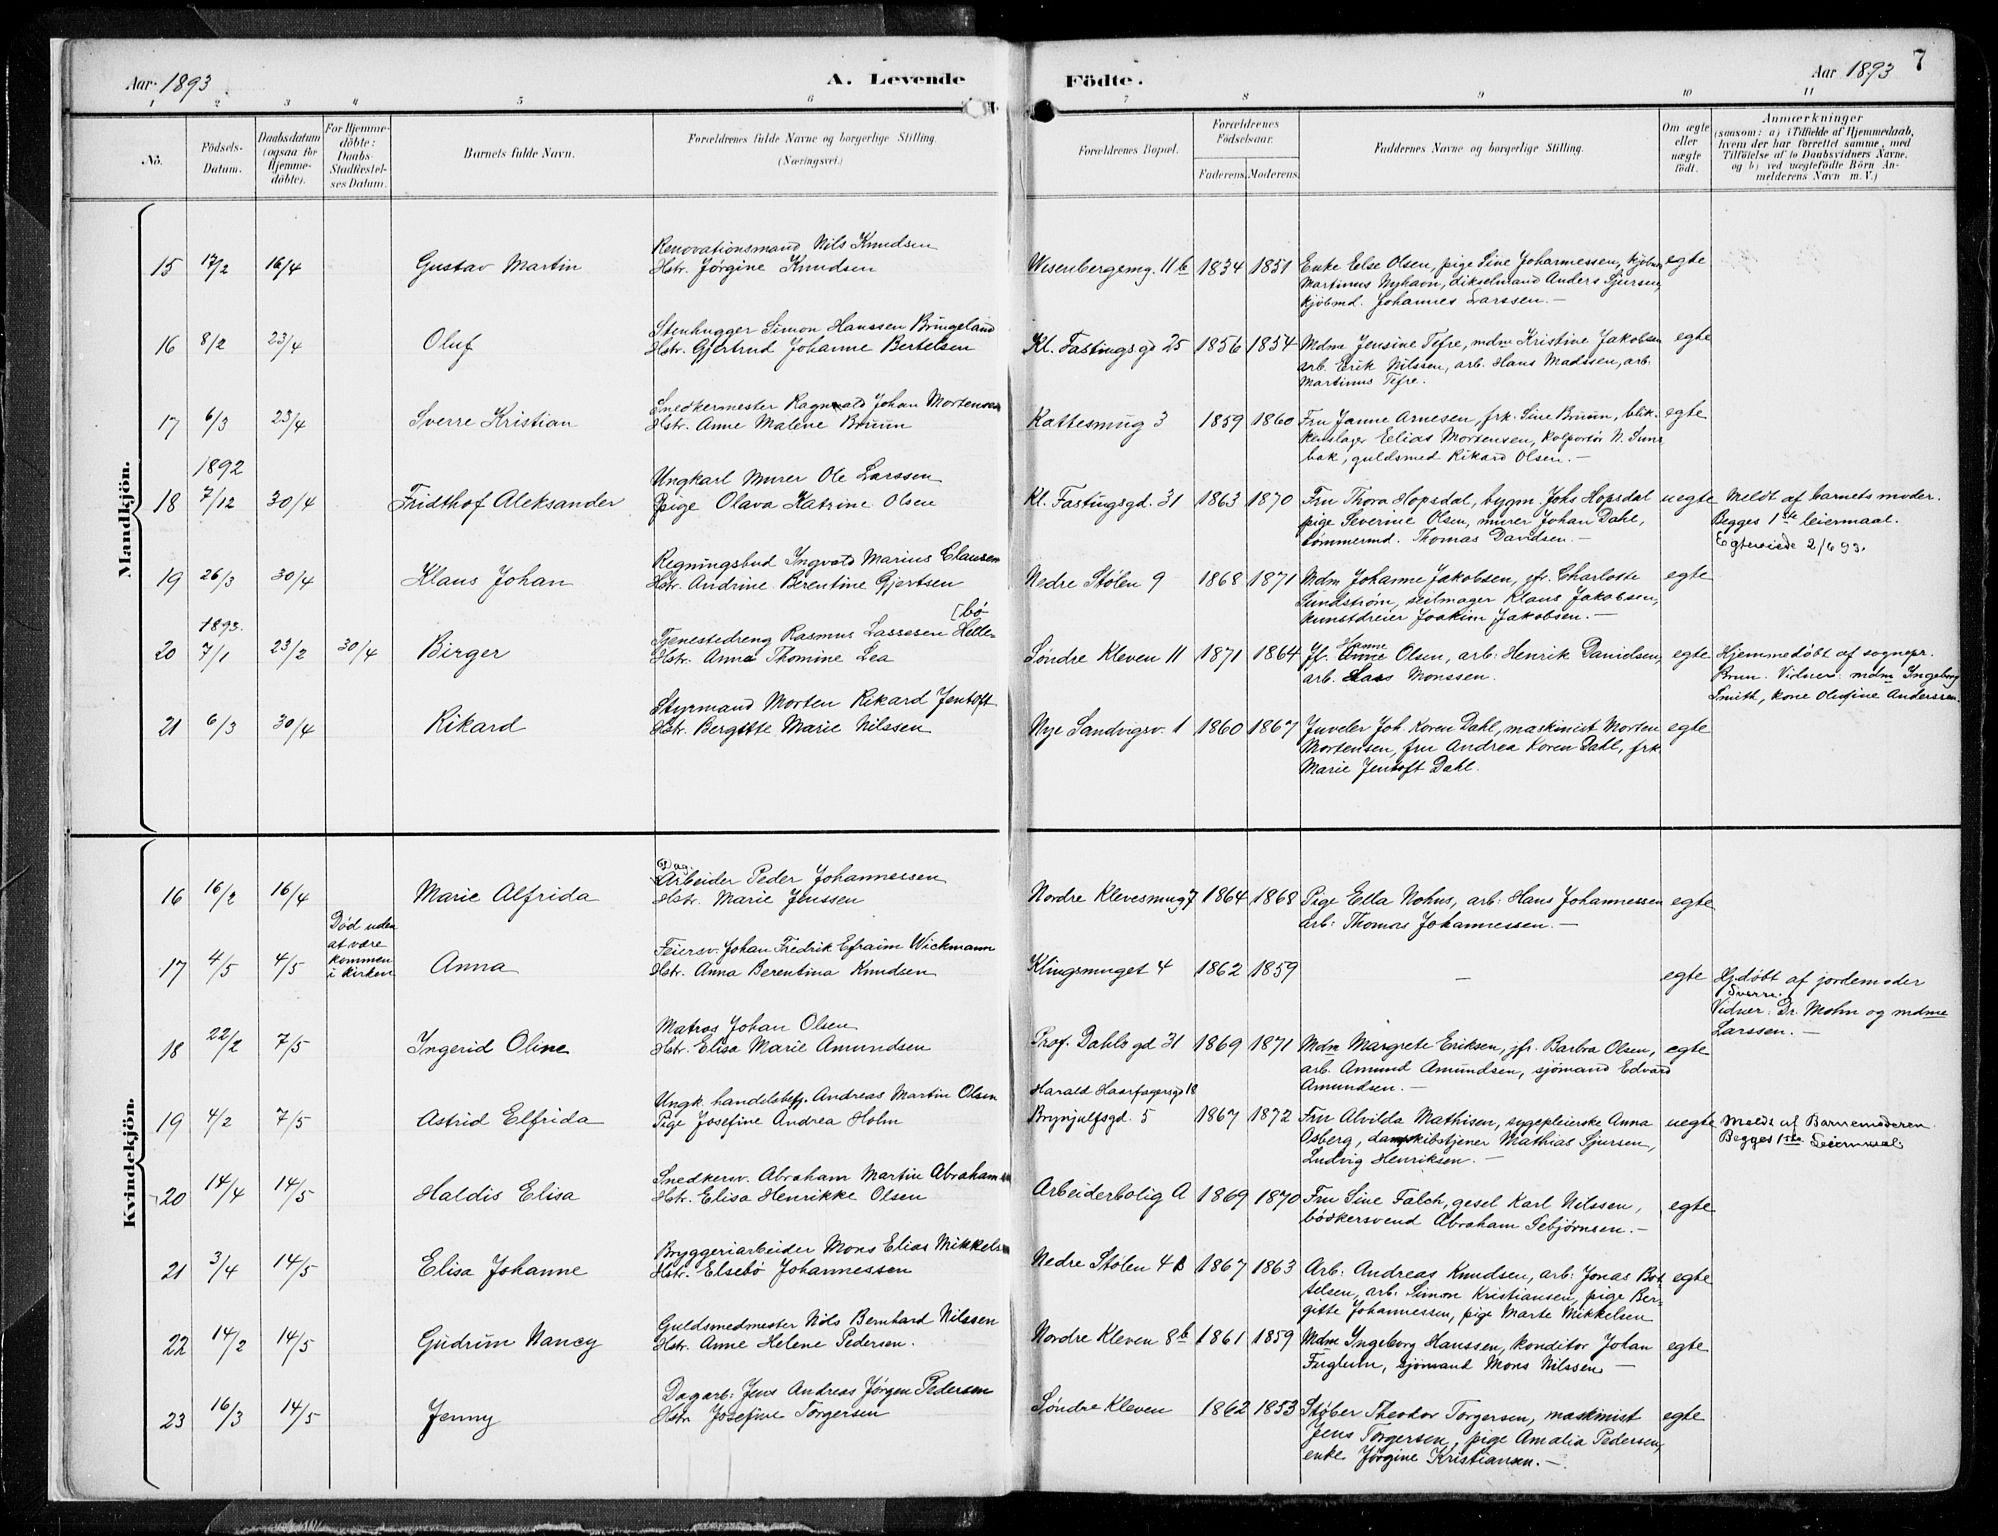 Aar 1893
A. Levende
Födte.
Aar 1893
7
1 2 3 4 5 6 7 8 9 10 11
No.
Födsels-
Datum.
Daabsdatum
(ogsaa for
Hjemme-
döbte).
For Hjemme-
döbte:
Daabs-
Stadfæstel-
ses Datum.
Barnets fulde Navn.
Forældrenes fulde Navne og borgerlige Stilling.
(Næringsvei.)
Forældrenes Bopæl.
Forældrenes
Födselsaar.
Faderens. Moderens.
Faddernes Navne og borgerlige Stilling.
Om ægte
eller
uægte
födt.
Anmærkninger
(saasom: a) i Tilfælde af Hjemmedaab,
hvem der har forrettet samme, med
Tilföielse af to Daabsvidners Navne,
og b) ved uægtefödte Börn An-
melderens Navn m. V.)
Mandkjön.
Renovationsmand Nils Knudsen
15 17/2 16/4 Gustav Martin Hstr. Jørgine Knudsen Wesenbergsmg. 11b 1834 1851 Enke Else Olsen, pige Sine Johannessen, kjøbm egte
Martinus Nyhavn, dikselmand Anders Sjursen,
kjøbmd. Johannes Larssen.
Stenhugger Simon Hanssen Bringeland
16 8/2 23/4 Oluf Hstr. Gjertrud Johanne Bertelsen Kl. Fastingsgd 25 1856 1854 Mdm Jensine Tefre, mdm Kristine Jakobsen egte
arb. Erik Nilssen, arb. Hans Madssen, arb.
Martinus Tefre.
Snedkermester Ragnvald Johan Mortensen
17 6/3 23/4 Sverre Kristian Hstr. Anne Malene Bruun Kattesmug 3 1859 1860 Fru Janne Arnesen, frk. Sine Bruun, blik- egte
kenslager Elias Mortensen, kolportør N. Suns
bak, guldsmed Rikard Olsen.
1892
Ungkarl Murer Ole Larssen
18 7/12 30/4 Fridthof Aleksander Pige Olava Katrine Olsen Kl. Fastingsgd. 31 1863 1870 Fru Thora Hopsdal, bygm. Johs Hopsdal uegte Meldt af barnets moder.
pige Severine Olsen, murer Johan Dahl, Begges 1ste leiermaal.
tømmermd. Thomas Davidsen. Egteviede 2/6 93.
Regningsbud Ingvald Marius Clausen
19 26/3 30/4 Klaus Johan Hstr. Andrine Berentine Gjertsen Nedre Stølen 9 1868 1871 Mdm Johanne Jakobsen, jfr. Charlotte egte
Sundstrøm, seilmager Klaus Jakobsen,
kunstdreier Joakim Jakobsen.
1893. [bø
Tjenestedreng Rasmus Lassesen Helle-
20 7/1 23/2 30/4 Birger Hstr. Anna Thomine Lea Søndre Kleven 11 1871 1864 Jf. Hanne Olsen, arb. Henrik Danielsen, egte Hjemmedøbt af sognepr.
arb. Lars Monssen. Brun. Vidner: mdm Ingeborg
Smith, kone Olufine Anderssen.
Styrmand Morten Rikard Jentoft
21 6/3 30/4 Rikard Hstr. Bergitte Marie Nilssen Nye Sandvigsv. 1 1860 1867 Juveler Joh. Koren Dahl, maskinist Morten egte
Mortensen, fru Andrea Koren Dahl, frk.
Marie Jentoft Dahl.
Kvindekjön.
Dag.
Arbeider Peder Johannessen
16 16/2 16/4 Marie Alfrida Hstr. Marie Jenssen Nordre Klevesmug 7 1864 1868 Pige Ella Nohns, arb. Hans Johannessen egte
arb. Thomas Johannessen.
Død uden
at være
kommen
i kirken
Feiersv. Johan Fredrik Efraim Wickmann
17 4/5 4/5 Anna Hstr. Anna Berentina Knudsen Klingsmuget 4 1862 1859 – egte Hj.døbt af jordemoder
Sverre.
Vidner: Dr. Mohn og mdme
Larssen.
Matros Johan Olsen
18 22/2 7/5 Ingerid Oline Hstr. Elisa Marie Amundsen Prof. Dahls gd 31 1869 1871 Mdm Margrete Eriksen, jfr. Barbra Olsen, egte
arb. Amund Amundsen, sjømand Edvard
Amundsen.
Ungk. handelsbetj. Andreas Martin Olsen Harald Haarfagersgd 18
19 4/2 7/5 Astrid Elfrida Pige Josefine Andrea Holm Brynjulfsgd. 5 1867 1872 Fru Alvilda Mathisen, sygepleierske Anna uegte Meldt af Barnemoderen.
Osberg, dampskibstjener Mathias Sjursen, Begges 1ste Leiermaal.
Ludvig Henriksen.
Snedkersv. Abraham Martin Abrahamsen
20 14/4 14/5 Haldis Elisa Hstr. Elisa Henrikke Olsen Arbeiderbolig A 1869 1870 Fru Sine Falch, gesel Karl Nilssen, egte
bødkersvend Abraham Sebjørnsen.
Bryggeriarbeider Mons Elias Mikkelsen
21 3/4 14/5 Elisa Johanne Hstr. Elsebø Johannessen Nedre Stølen 4B 1867 1863 Arb. Andreas Knudsen, arb. Jonas Bot- egte
telsen, arb. Simon Kristiansen, pige Ber-
gitte Johannessen, pige Marte Mikkelsen
Guldsmedmester Nils Bernhard Nilssen
22 14/2 14/5 Gudrun Nancy Hstr. Anne Helene Pedersen. Nordre Kleven 8b 1861 1859 Mdm Ingeborg Hanssen, konditor Johan egte
Fuglum, sjømand Mons Nilssen
Dagarb. Jens Andreas Jørgen Pedersen
23 16/3 14/5 Jenny Hstr Josefine Torgersen Søndre Kleven 1862 1853 Støber Theodor Torgersen, maskinist egte
Jens Torgersen, pige Amalia Pedersen,
enke Jørgine Kristiansen.